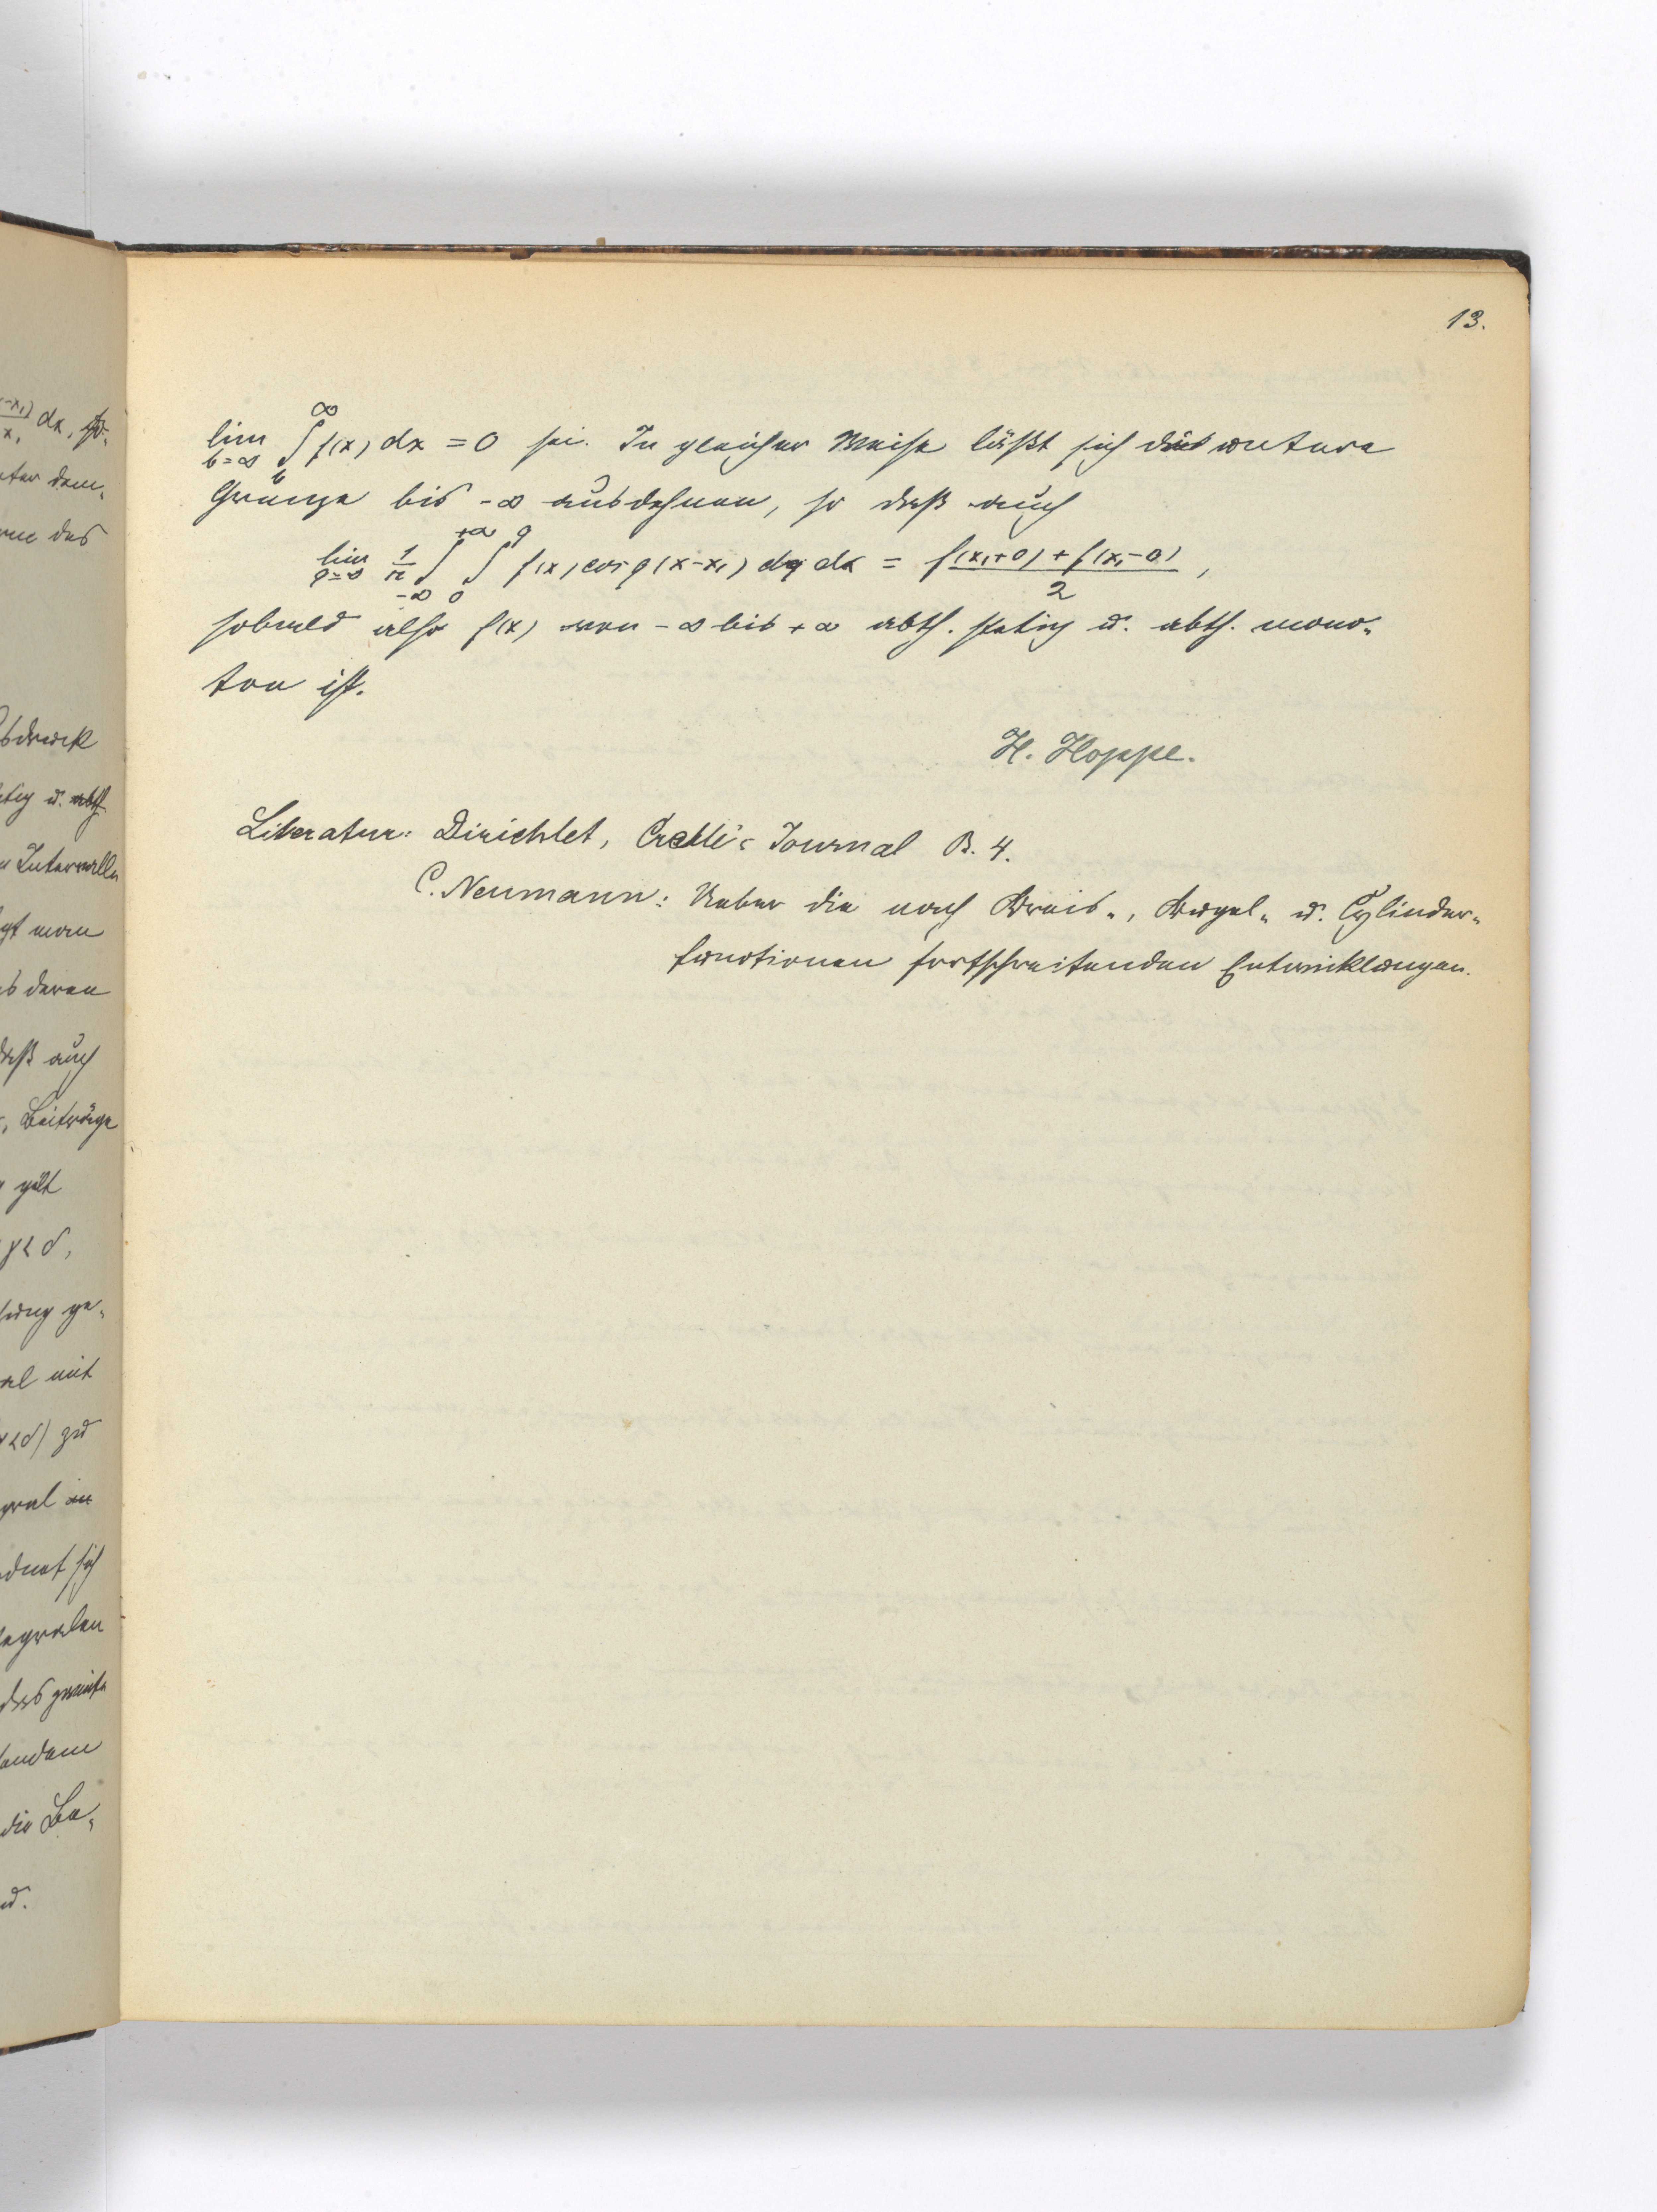 13.
lim b=∞ ∫_b^∞ f(x) dx = 0 sei. In gleicher Weise läßt sich die untere
Gränze bis -∞ ausdehnen, so daß auch
lim q=∞ 1/π ∫_{-∞}^{+∞} ∫_0^q f(x) cos q(x-x₁) dq dx = f(x₁+0) + f(x₁-0) / 2,
sobald also f(x) von -∞ bis +∞ abth. stetig u. abth. mono-
ton ist.
H. Hoppe.
Literatur: Dirichlet, Crelle's Journal B. 4.
C. Neumann: Ueber die nach Kreis-, Kugel- u. Cylinder-
functionen fortschreitenden Entwicklungen.
dx,
dem
das
u. abth.
Intervalle
man
deren
daß auch
Beiträge
gilt
γ<δ,
ge-
mit
<δ) zu
an
sich
das zweite
die Be-